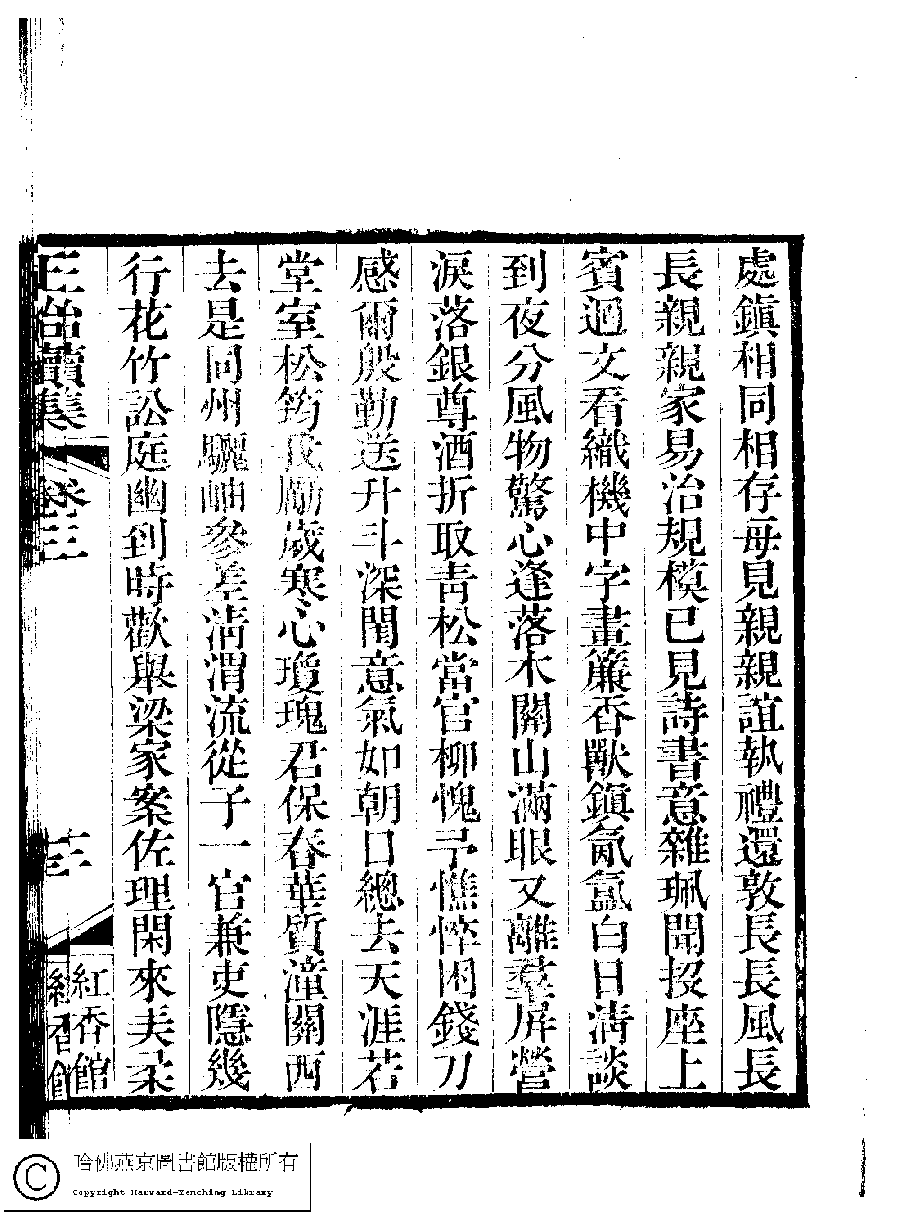 處鎭相同相存母見親親誼執禮還敦長長風長
長親親家易治規模已見詩書意雜珮聞投座上
賓過文看織機中字畫簾香獸鎭氤氳白日淸談
到夜分風物驚心逢落木關山滿眼又離羣屏營
淚落銀尊酒折取靑松當官柳愧予憔悴困錢刀
感爾殷勤送升斗深閨意氣如朝日總去天涯若
堂室松筠我勵歲寒心瓊瑰君保春華質潼關西
去是同州驪岫參差淸渭流從子一官兼吏隱幾
行花竹訟庭幽到時歡舉梁家案佐理閑來美朶
三台讀集 卷三
紅香館
哈佛燕京圖書館版權所有
Copyright Harvard-Yenching Library